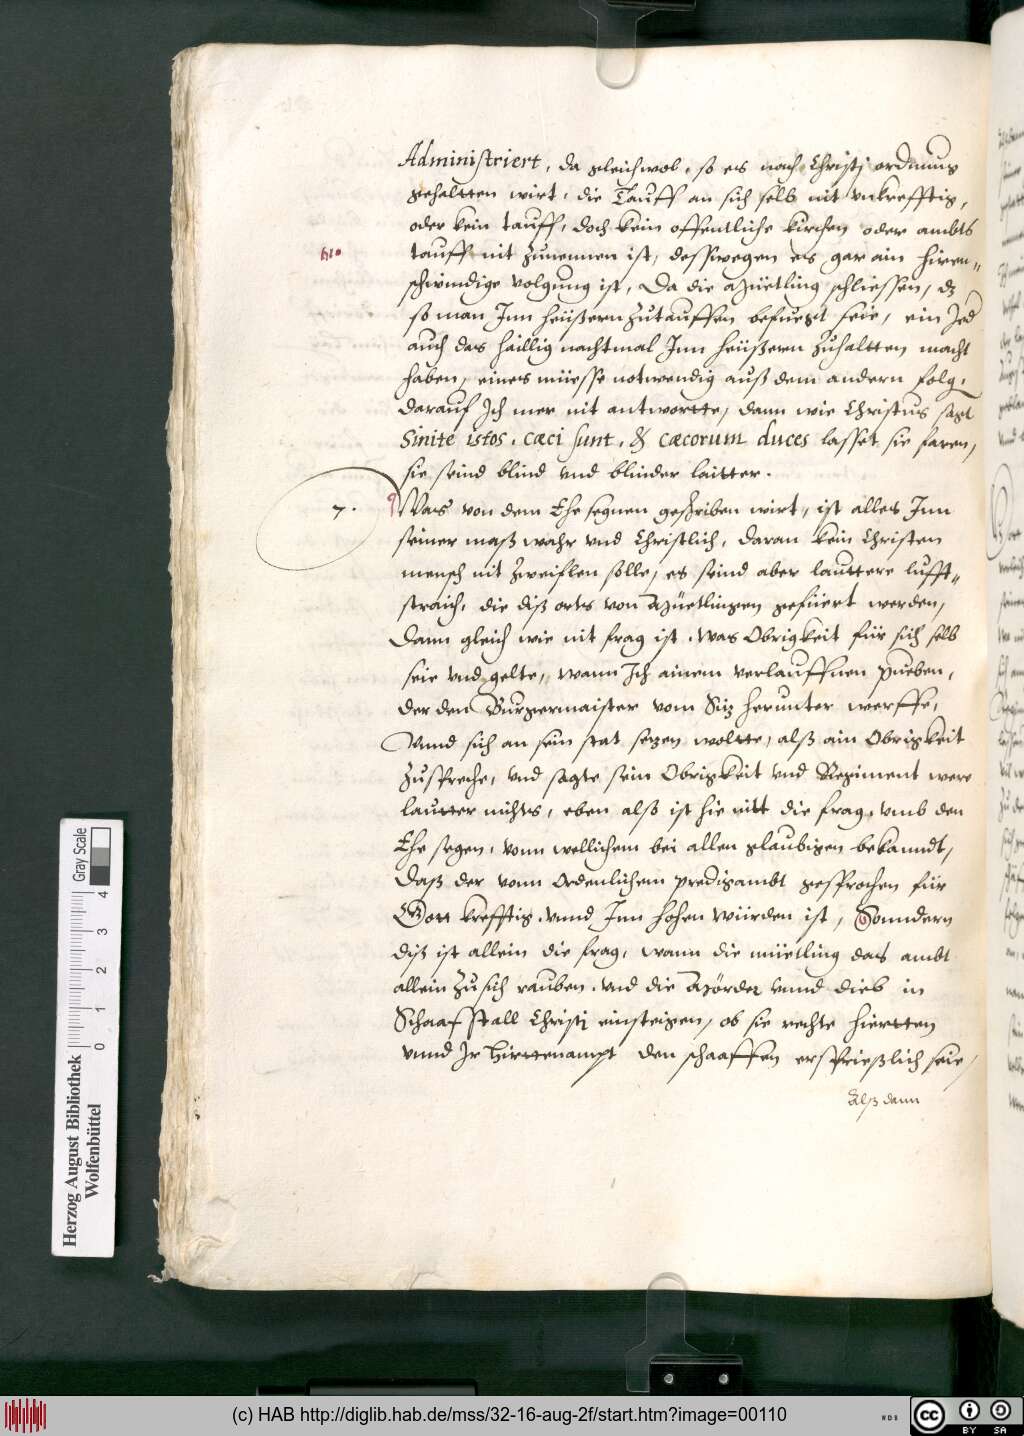 Administriert, da gleichwol, so es nach Christi ordnung
gehaltten wirt, die Tauff an sich selb nit vnkrefftig,
oder kein tauff, doch kein offentliche kirchen oder ambts
tauff nit zunennen ist, desswegen es gar ain hieren=
schwindige volgung ist, Da die Müetling schliessen, dz
so man Jnn heüßern zutauffen befuegt seie, ein Jed
auch das haillig nachtmal Jnn heüßern zuhaltten macht
haben, eines müesse notwendig auß dem andern folg,
darauf Jch mer nit antwortte, dann wie Christus sagt
Sinite istos, cæci sunt, & cæcorum duces lasset sie faren,
sie seind blind vnd blinder laitter.
7.
Was von dem Ehe segnen geschriben wirt, ist alles Jnn
seiner maß wahr vnd Christlich, daran kein Christen
mensch nit zweiflen solle, es seind aber lauttere lufft=
straich, die diß orts von Müetlingen gefüert werden,
Dann gleich wie nit frag ist, was Obrigkeit für sich selb
seie vnd gelte, wann Jch ainem verlauffnen pueben,
der den Burgermaister vom Siz herunter werffe,
Vnnd sich an sein stat sezen woltte, alß ain Obrigkeit
zuspreche, vnd sagte sein Obrigkeit vnd Regiment were
lautter nichts, eben alß ist hie nitt die frag, vmb den
Ehe segen, vonn wellichem bei allen glaubigen bekanndt,
Daß der vonn Ordenlichem predigambt gesprochen für
Gott krefftig, vnnd Jnn hohen würden ist, Sonndern
diß ist allein die frag, wann die müetling das ambt
allein zu sich rauben, vnd die Mörder vnnd dieb in
Schaaf stall Christi einsteigen, ob sie rechte hiertten
vnnd Jr Hirttenampt den schaaffen ersprießlich seie,
Alß dann
Herzog August Bibliothek
Wolfenbüttel
0 1 2 3 4
Gray Scale
(c) HAB http://diglib.hab.de/mss/32-16-aug-2f/start.htm?image=00110
WDB
cc BY SA